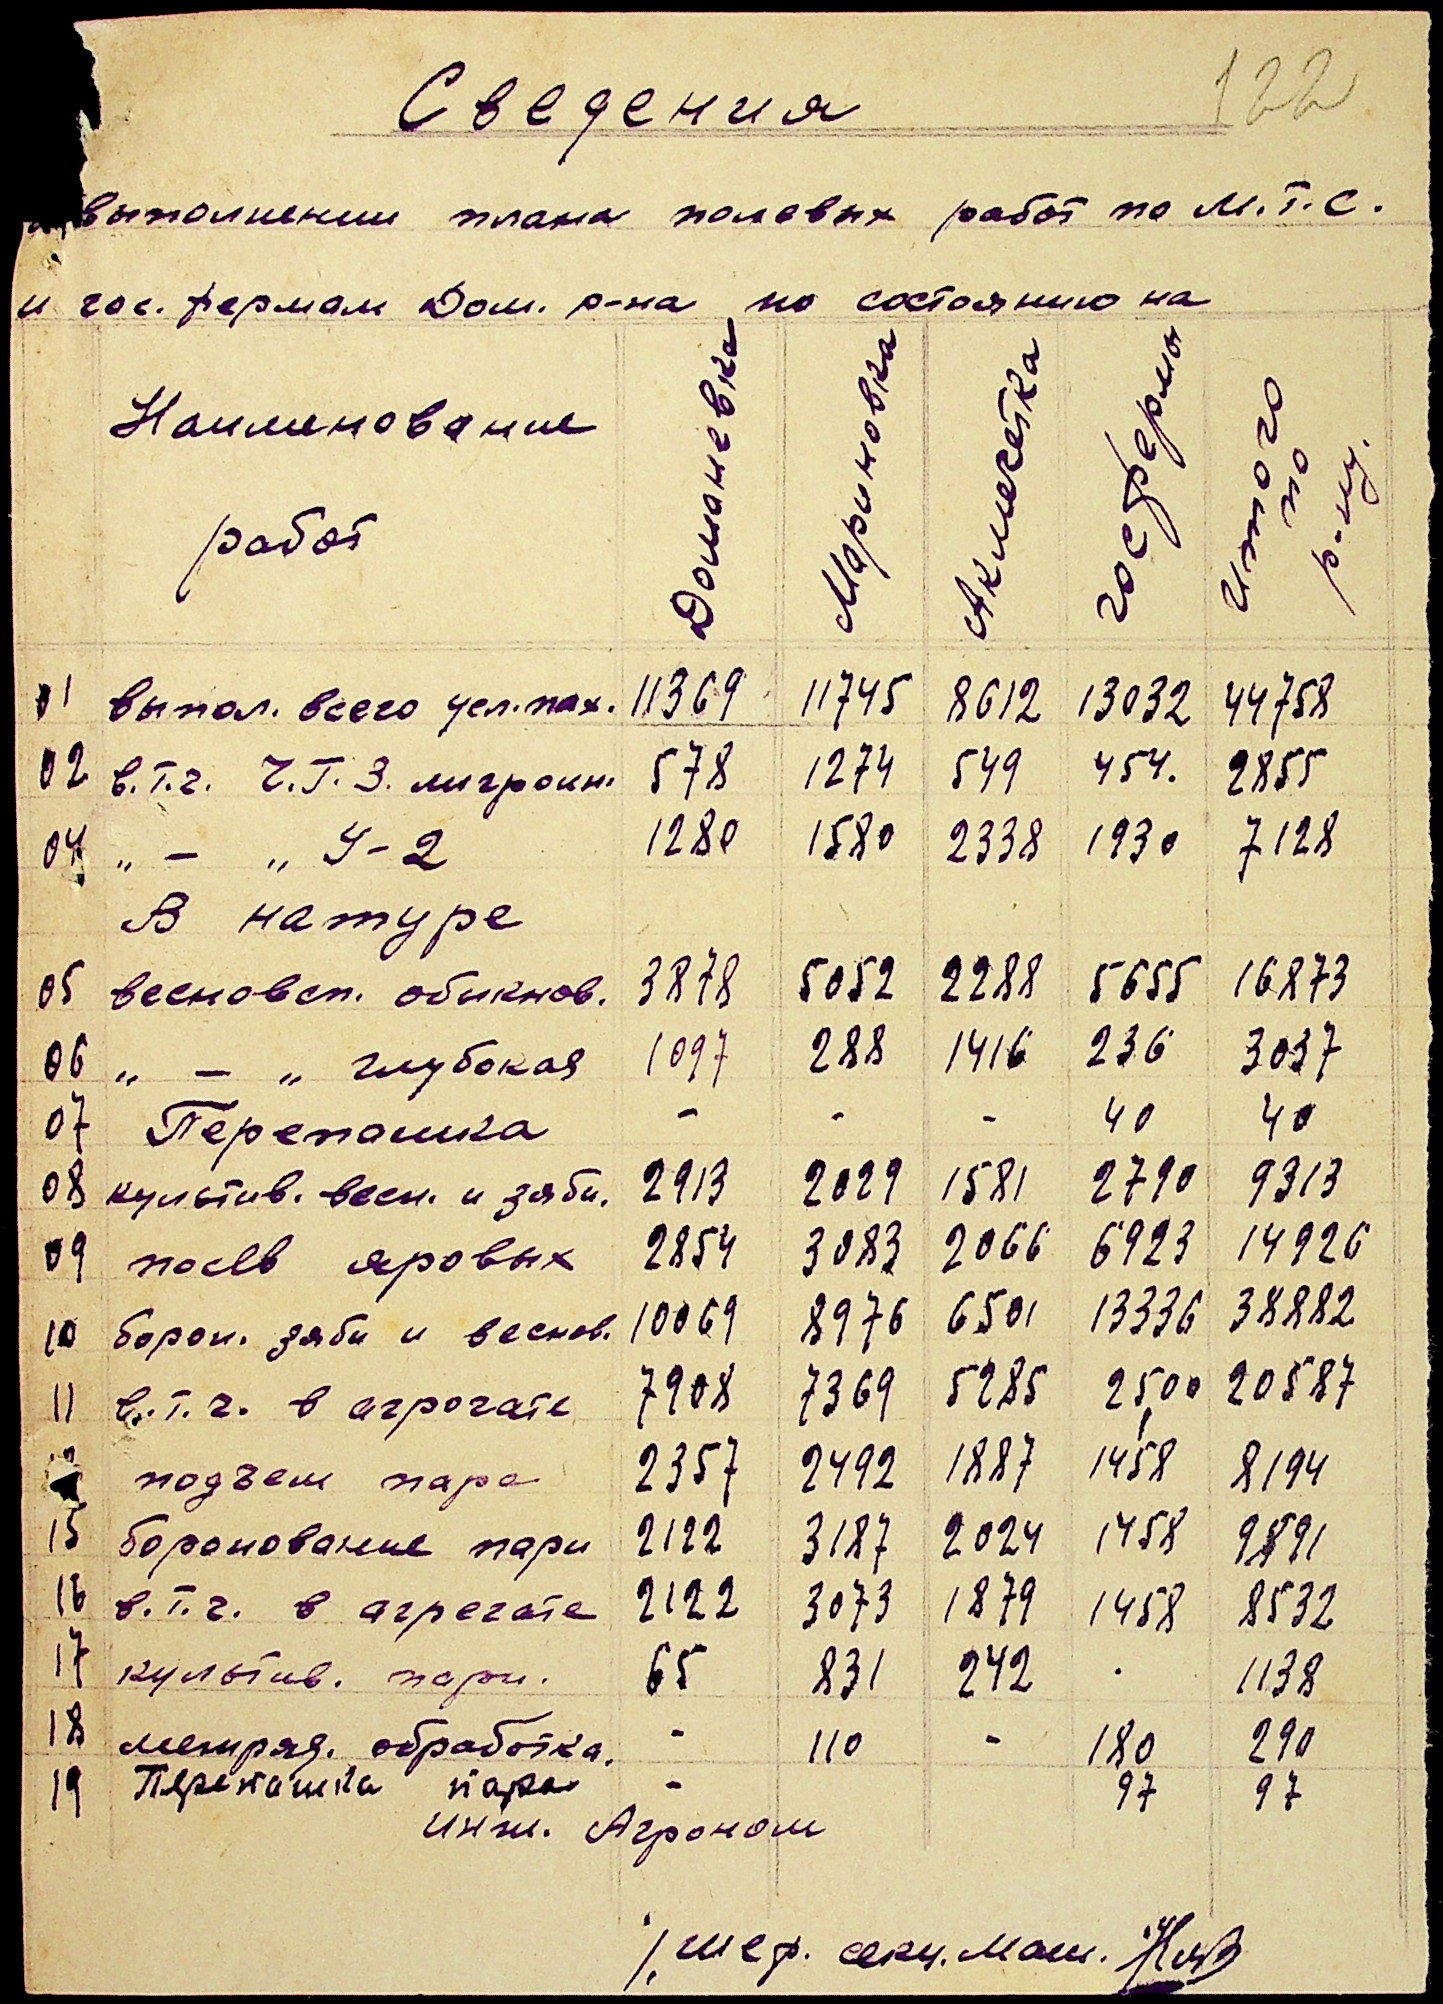 122
Сведения
выполнении плана полевых работ по М.Т.С.
и гос. фермам Дом. р-на по состоянию на
Наименование работ Доманевка Мариновка Акмечетка госфермы Итого по р-ну.
01 выпол. всего усл. пах. 11369 11745 8612 13032 44758
02 в.т.ч. Ч.Т.З. лигроин. 578 1274 549 454. 2855
04 „ — „ У-2 1280 1580 2338 1930 7128
В натуре
05 весновсп. обикнов. 3878 5052 2288 5655 16873
06 „ — „ глубокая 1097 288 1416 236 3037
07 Перепашка - - - 40 40
08 культив. весн. и зяби. 2913 2029 1581 2790 9313
09 посев яровых 2854 3083 2066 6923 14926
10 борон. зяби и веснов. 10069 8976 6501 13336 38882
11 в.т.ч. в агрогате 7908 7369 5285 2500 20587
подъем пара 2357 2492 1887 1458 8194
15 боронование пари 2122 3187 2024 1458 9891
16 в.т.ч. в агрегате 2122 3073 1879 1458 8532
17 культив. пари. 65 831 242 . 1138
18 межряд. обработка. - 110 - 180 290
19 Перепашка пара - 97 97
инж. Агроном
шеф. секц. маш.